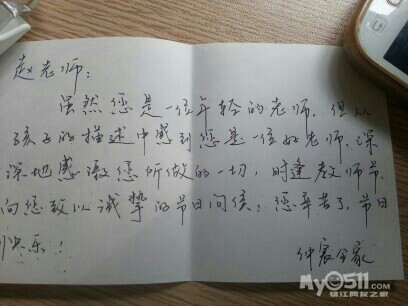 赵老师：
虽然您是一位年轻的老师，但从
孩子的描述中感到您是一位好老师，深
深地感谢您所做的一切，时逢教师节，
向您致以诚挚的节日问候：您辛苦了，节日
快乐！
仲家全家
My0511.com
镇江网友之家